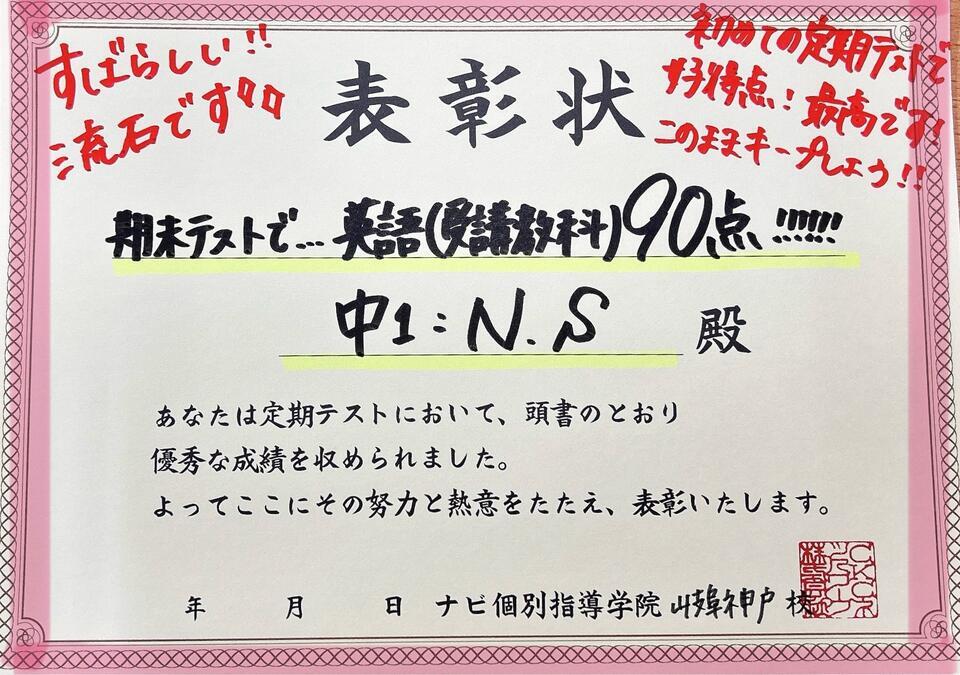 すばらしい!!
流石です
初めての定期テストで
好得点!最高です!
このままキープしよう!!
表彰状
期末テストで…英語(受講教科)90点!!!!!!
中1:N.S 殿
あなたは定期テストにおいて、頭書のとおり
優秀な成績を収められました。
よってここにその努力と熱意をたたえ、表彰いたします。
年 月 日 ナビ個別指導学院 神戸 校